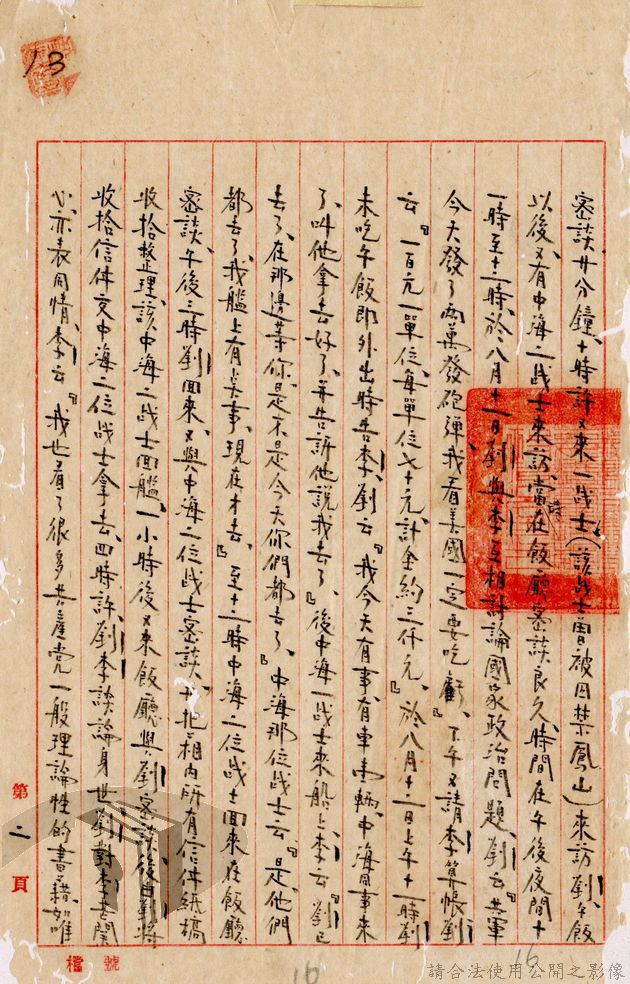 13
密談廿分鐘、十時許又來一战士(該战士曾被囚禁鳳山)來訪劉、午飯
以後、又有中海二战士來訪、當時在飯廳密談良久、時間在午後夜間十
一時至十二時、於八月十一日劉與李互相討論國家政治問題、劉云『共軍
今天發了兩萬發砲彈、我看美國一定要吃虧』、下午又請李算帳、劉
云、『一百元一單位、每單位七十元、計全約三仟元、』於八月十二日上午十一時、劉
未吃午飯即外出時告李、劉云『我今天有事、有車志輛、中海同事來
了、叫他拿去好了、并告訴他說我去了、』後中海一战士來船上、李云『劉已
去了、在那邊等你、是不是今天你們都去了、』中海那位战士云『是他們
都去了、我艦上有点事、現在才去、』至十二時中海二位战士囬來在飯廳
密談、午後三時劉囬來、又與中海二位战士密談、并把箱內所有信件紙稿
收拾整理、該中海二战士囬艦、一小時後又來飯廳與劉密談、後由劉將
收拾信件交中海二位战士拿去、四時許、劉李談論身世、劉對李甚関
心、亦表同情、李云『我也看了很多共產党一般理論性的書籍、如唯
第二頁
檔號
16
16
請合法使用公開之影像